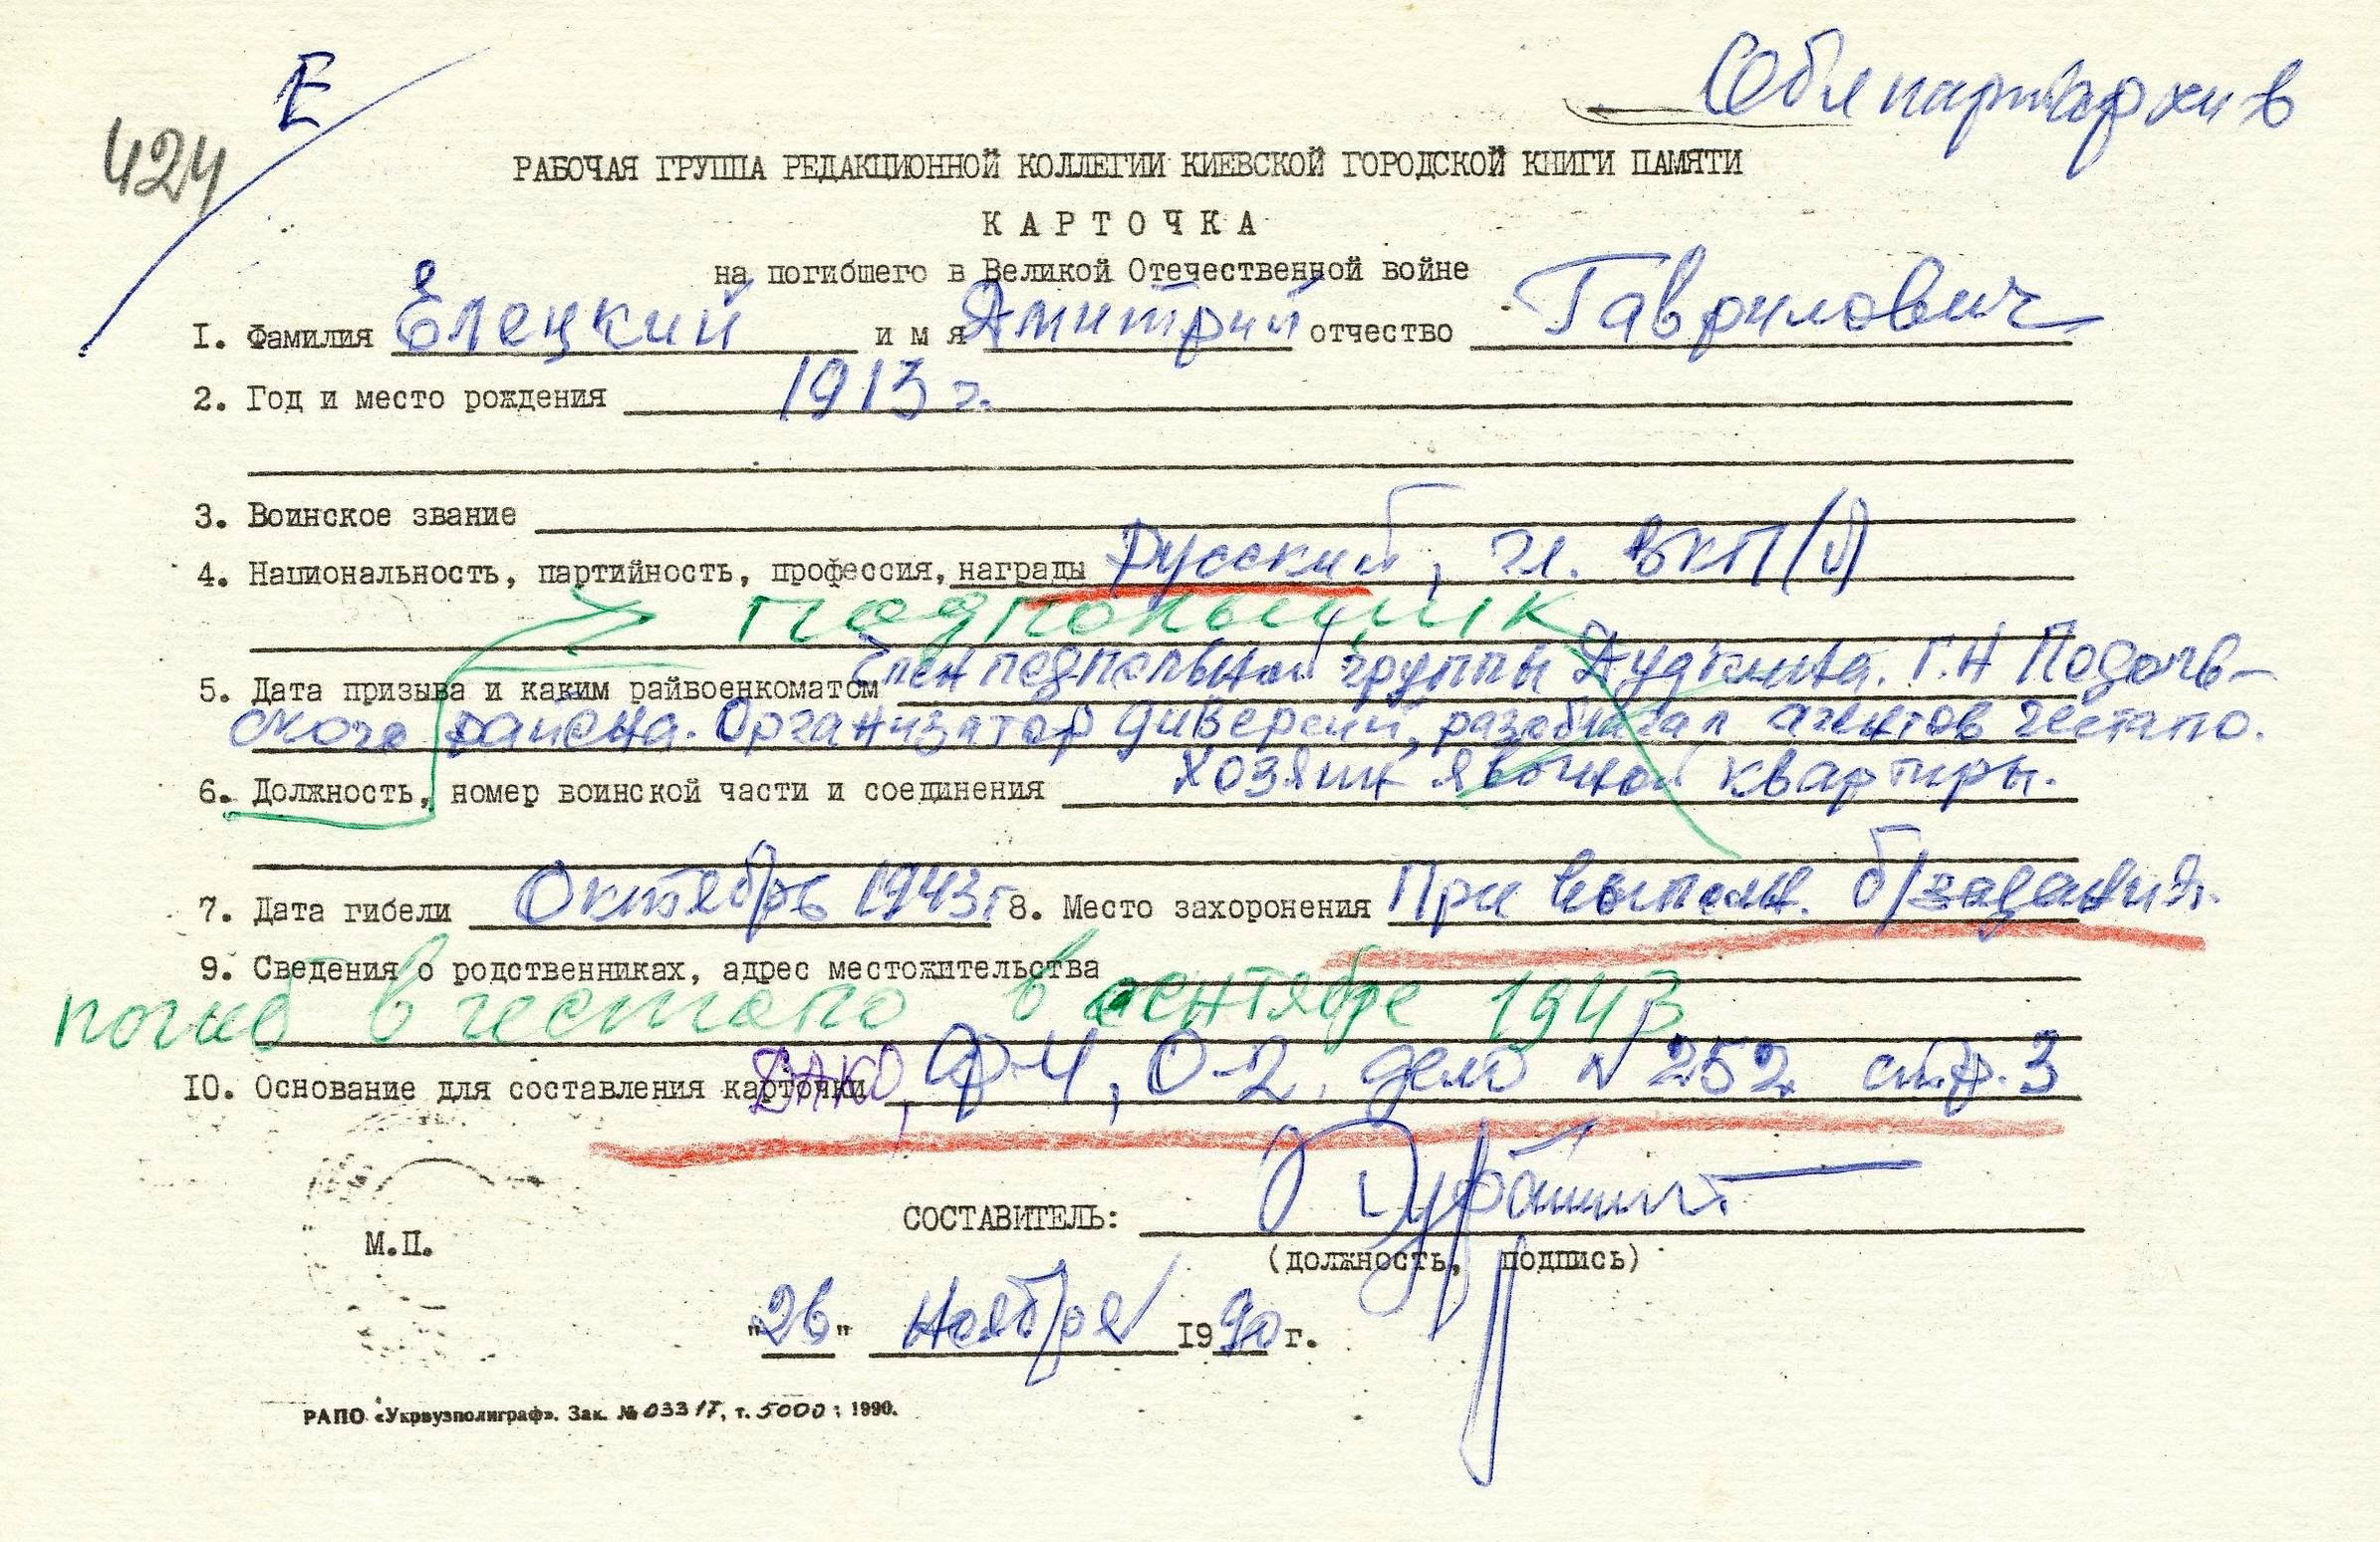 Е
424
Облпартархив
РАБОЧАЯ ГРУППА РЕДАКЦИОННОЙ КОЛЛЕГИИ КИЕВСКОЙ ГОРОДСКОЙ КНИГИ ПАМЯТИ
КАРТОЧКА
на погибшего в Великой Отечественной войне
I. Фамилия Елецкий имя Дмитрий отчество Гаврилович
2. Год и место рождения 1913 г.
3. Воинское звание
4. Национальность, партийность, профессия, награды Русский, чл. ВКП(б)
подпольщик
5. Дата призыва и каким райвоенкоматом Член подпольной группы Дудкина. Г.Н Подоль-
ского района. Организатор диверсий, разоблачал агентов гестапо.
6. Должность, номер воинской части и соединения Хозяин явочной квартиры.
7. Дата гибели Октябрь 1943г 8. Место захоронения При выполн. б/задания.
9. Сведения о родственниках, адрес местожительства
погиб в гестапо в сентябре 1943
10. Основание для составления карточки ДАКО, Ф-4, О-2. дело № 252 стр. 3
СОСТАВИТЕЛЬ:
(должность, подпись)
М.П.
"26" ноября 1990 г.
РАПО «Укрвузполиграф». Зак. № 0331Т, т. 5000; 1990.